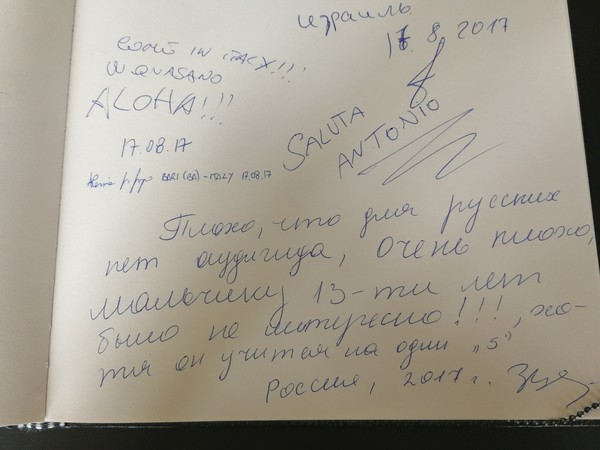 израиль
17.8.2017
COME IN ITALY!!!
ALOHA!!!
17.08.17
SALUTA
ANTONIO
BARI (BA) - ITALY 17.08.17
Плохо, что для русских
нет аудигида, очень плохо,
мальчику 13-ти лет
было не интересно!!!, хо-
тя он учится на одни „5"
Россия, 2017 г.